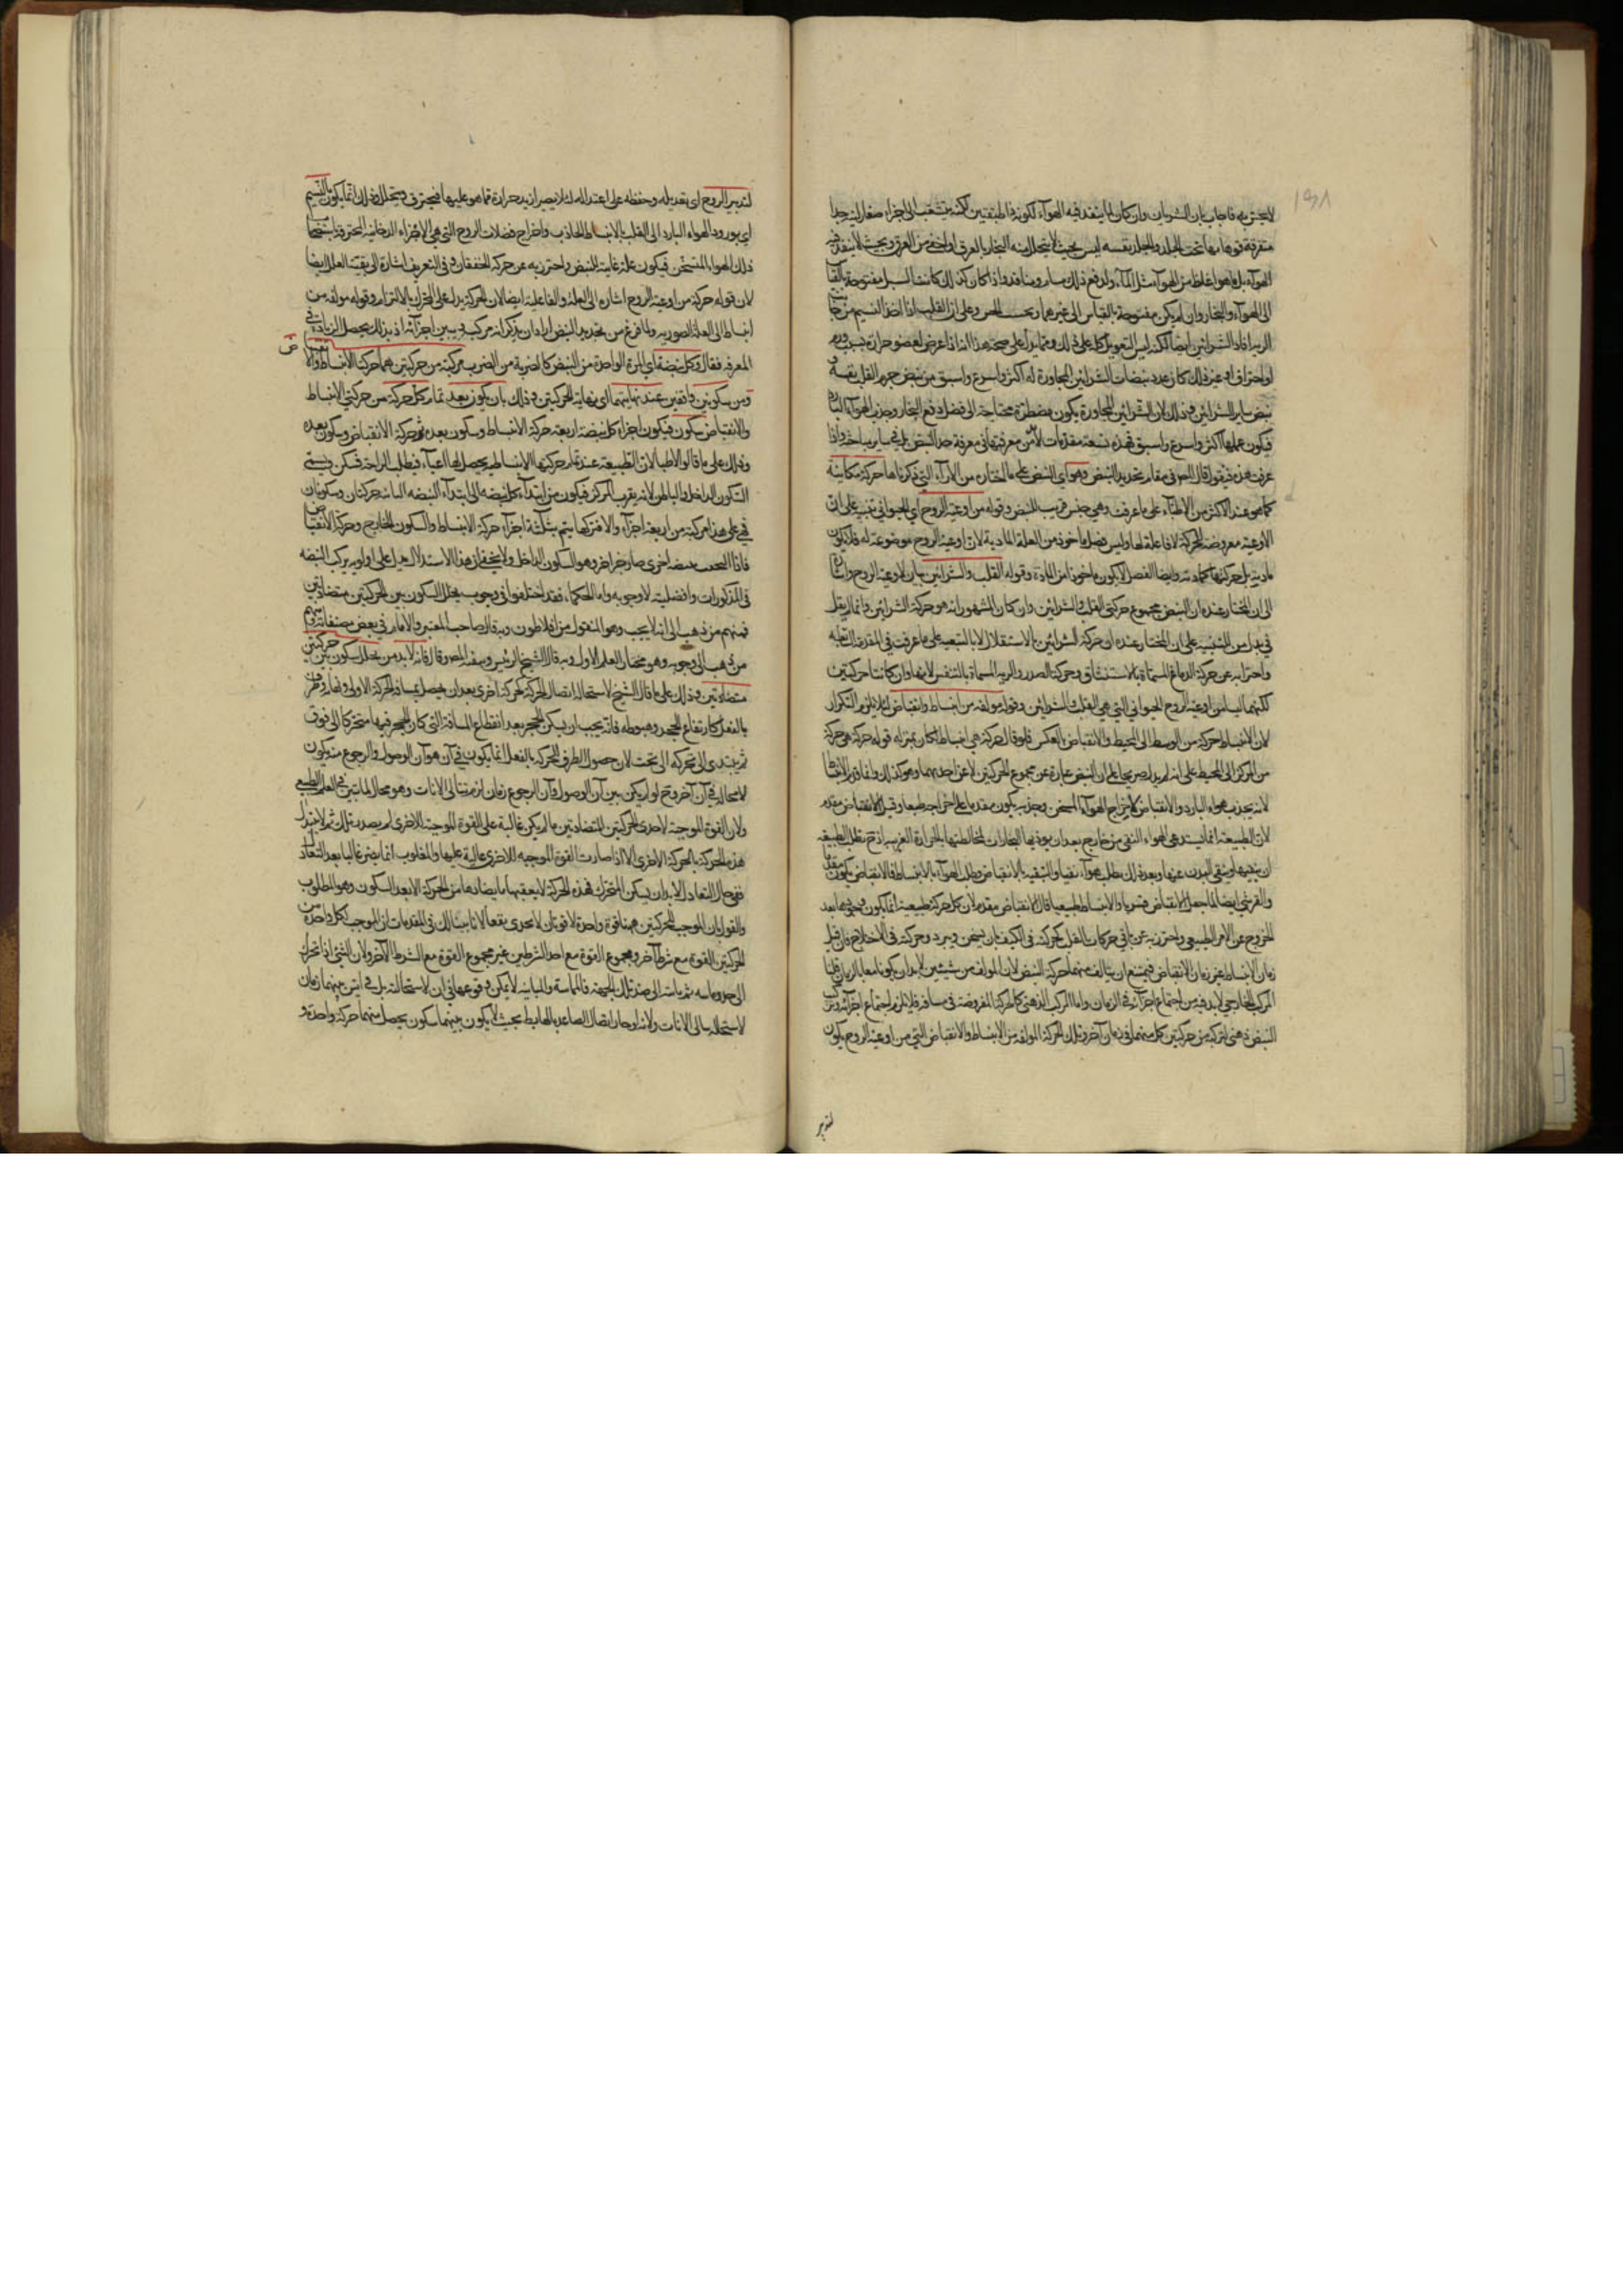 لا يحترق به فاجاب بان الشريان وان كان لا ينفذ فيه الهواء لكونه ذا طبقتين لكنه يتشعب الى اجزاء صغار لينة جدا
متفرقة فوهاتها تحت الجلد والجلد نفسه ليس بحيث لا يتحلل منه البخار بالعرق او اخفى من العرق وبحيث لا ينفذ فيه
الهواء بل ما هو اغلظ من الهواء مثل الماء ولدفع ذلك مسام ومنافذ واذا كان كذلك كانت السبل مفتوحة بالقياس
الى الهواء والبخار وان لم يكن مفتوحة بالقياس الى غيرهما وبحسب الحس وعلى ان القلب اذا اخذ النسيم من جانب
الرية افاد الشرائين ايضا لكنه ليس التعويل كله على ذلك ومما يدل على صحة هذا انه اذا عرض لعضو حرارة بسبب ورم
او احتراق او غير ذلك كان عدد نبضات الشرائين المجاورة له اكثر واسرع واسبق من نبض جرم القلب نفسه
نبض ساير الشرائين وذلك لان الشرائين المجاورة يكون مضطرة محتاجة الى فضل دفع البخار وجذب الهواء البارد
فيكون عملها اكثر واسرع واسبق فهذه تسعة مقدمات لا بد من معرفتها في معرفة حد النبض بل في ساير مباحثه واذا
عرفت هذه فنقول قال المص في مقام تحديد النبض وهو اي النبض على ما المختار من الآراء التي ذكرناها حركة مكانية
كما هو عند الاكثر من الاطباء على ما عرفت وهي جنس قريب للنبض وقوله من اوعية الروح اي الحيواني تنبيه على ان
الاوعية معروضة للحركة لا فاعلة لها وليس فصل ماخوذ من العلة المادية لان اوعية الروح موضوعة له فلا يكون
مادية بل حركتها كمادته وايضا الفصل لا يكون ماخوذا من المادة وقوله القلب والشرائين بيان لاوعية الروح واشارة
الى ان المختار عنده ان النبض مجموع حركتي القلب والشرائين وان كان المشهور انه هو حركة الشرائين وانما لم يقل
واحتراز به عن حركة الدماغ المسماة بالاستنشاق وحركة الصدر والرية المسماة بالتنفس لانها وان كانتا حركتين
لكنهما ليسا من اوعية الروح الحيواني التي هي القلب والشرائين وقوله مؤلفة من انبساط وانقباض لئلا يلزم التكرار
لان الانبساط حركة من الوسط الى المحيط والانقباض بالعكس فلو قال حركة هي انبساط لكان بمنزلة قوله حركة هي حركة
من المركز الى المحيط على انه لم يدل صريحا على ان النبض عبارة عن مجموع الحركتين لا عن احدهما وهو كذلك وانما قدم الانبساط
لانه يجذب هواء البارد والانقباض لاخراج الهواء المسخن وجذبه يكون مقدما على اخراجه طبعا وقيل الانقباض مقدم
لان الطبيعة انما يستدعي الهواء النقي من خارج بعد ان يوذيها البخارات لمخالطتها بالحرارة الغريبة اذ ح يطلب الطبيعة
والقرشي ايضا لما جعل الانقباض قسريا والانبساط طبيعيا قال الانقباض مقدم لان كل حركة طبيعية انما يكون وجودها بعد
الخروج عن الامر الطبيعي واحترز به عن باقي حركات القلب كحركته في الكيف بان يسخن ويبرد وحركته في الاختلاج فان قيل
زمان الانبساط غير زمان الانقباض فيمتنع ان يتالف منهما حركة النبض لان المؤلف من شيئين لا بد ان يكونا معا بالزمان قلنا
المركب الخارجي لا بد فيه من اجتماع اجزائه في الزمان واما المركب الذهني كالحركة المفروضة في مسافة فلا يلزم اجتماع اجزائه وتركيب
النبض ذهني لتركبه من حركتين كل منهما في زمان آخر وتلك الحركة المؤلفة من الانبساط والانقباض التي من اوعية الروح يكون
لتدبير
لتدبير الروح اي تعديله وحفظه على اعتداله لئلا يصير ازيد حرارة مما هو عليها فيحترق ويتحلل وذلك انما يكون بالنسيم
اي بورود الهواء البارد الى القلب بالانبساط الجاذب واخراج فضلات الروح التي هي الاجزاء الدخانية المحترقة باستحالة
ذلك الهواء المتسخن فيكون علة غاية للنبض واحترز به عن حركة الخفقان وفي التعريف اشارة الى بقية العلل ايضا
لان قوله حركة من اوعية الروح اشارة الى العلة والفاعلية ايضا لان الحركة يدل على المحرك بالالتزام وقوله مؤلفة من
انبساط الى العلة الصورية ولما فرغ من تحديد النبض اراد ان يذكر انه مركب ويبين اجزائه اذ بذلك يحصل الزيادة في
المعرفة فقال وكل نبضة اي المرة الواحدة من النبض كالضربة من الضرب مركبة من حركتين هما حركتا الانبساط والانقباض
ومن سكونين واقفين عند نهايتهما اي نهاية الحركتين وذلك بان يكون بعد تمام كل حركة من حركتي الانبساط
والانقباض سكون فيكون اجزاء كل نبضة اربعة حركة الانبساط وسكون بعده ثم حركة الانقباض وسكون بعده
وذلك على ما قالوا الاطباء لان الطبيعة عند تمام حركتها الانبساطية يحصل لها اعياء فيطلب الراحة فيسكن ويسمى
السكون الداخل والباطن لانه يقرب المركز فيكون من ابتداء كل نبضة الى ابتداء النبضة الثانية حركتان وسكونان
فهي على هذا مركبة من اربعة اجزاء والا فتركها يتم بثلثة اجزاء حركة الانبساط والسكون الخارج وحركة الانقباض
فاذا التحقت نبضة اخرى صار جزء آخر وهو السكون الداخل ولا يخفى ان هذا الاستدلال يدل على اولوية تركب النبضة
في المذكورات وافضليته لا وجوبه واما الحكماء فقد اختلفوا في وجوب تخلل السكون بين الحركتين متضادتين
فمنهم من ذهب الى انه لا يجب وهو المنقول من افلاطون وبه قال صاحب المعتبر والامام في بعض مصنفاته ومنهم
من ذهب الى وجوبه وهو مختار المعلم الاول وبه قال الشيخ الرئيس وتبعه المص وقال فانه لا بد من تخلل سكون بين كل حركتين
متضادتين وذلك على ما قال الشيخ لاستحالة اتصال الحركة بحركة اخرى بعد ان يحصل لمسافة الحركة الاولى نهاية وطرف
بالفعل كارتفاع الحجر وهبوطه فانه يجب ان يسكن الحجر بعد انقطاع المسافة التي كان الحجر فيها متحركا الى فوق
ثم يبتدئ الى تحركه الى تحت لان حصول الطرف للحركة بالفعل انما يكون في آن هو آن الوصول والرجوع منه يكون
لا محالة في آن آخر وح لو لم يكن بين آن الوصول وآن الرجوع زمان لزم تتالي الآنات وهو محال لما تبين في العلم الطبيعي
ولان القوة الموجبة لاحدى الحركتين المتضادتين ما لم يكن غالبة على القوة الموجبة للاخرى لم يصدر تلك ثم لا يتبدل
هذه الحركة بالحركة الاخرى الا اذا صارت القوة الموجبة للاخرى غالبة عليها والمغلوب انما يصير غالبا بعد التعادل
ففي حال التعادل لا بد ان يسكن المتحرك فهذه الحركة لا يعقبها ما يضادها من الحركة الا بعد السكون وهو المطلوب
والقول بان الموجب للحركتين ههنا قوة واحدة لا قوتان لا يجدي نفعا لانا بينا لك في المقدمات ان الموجب لكل واحدة من
الحركتين القوة مع شرط آخر ومجموع القوة مع احد الشرطين غير مجموع القوة مع الشرط الآخر ولان الشيء اذا تحرك
الى حد وماسه ثم باينه الى ضد تلك الجهة فالمماسة والمباينة لا يمكن وقوعهما في آن لاستحالته بل في آنين بينهما زمان
لاستحالة تتالي الآنات ولانه لو جاز اتصال الصاعد بالهابط بحيث لا يكون بينهما سكون يحصل منهما حركة واحدة و